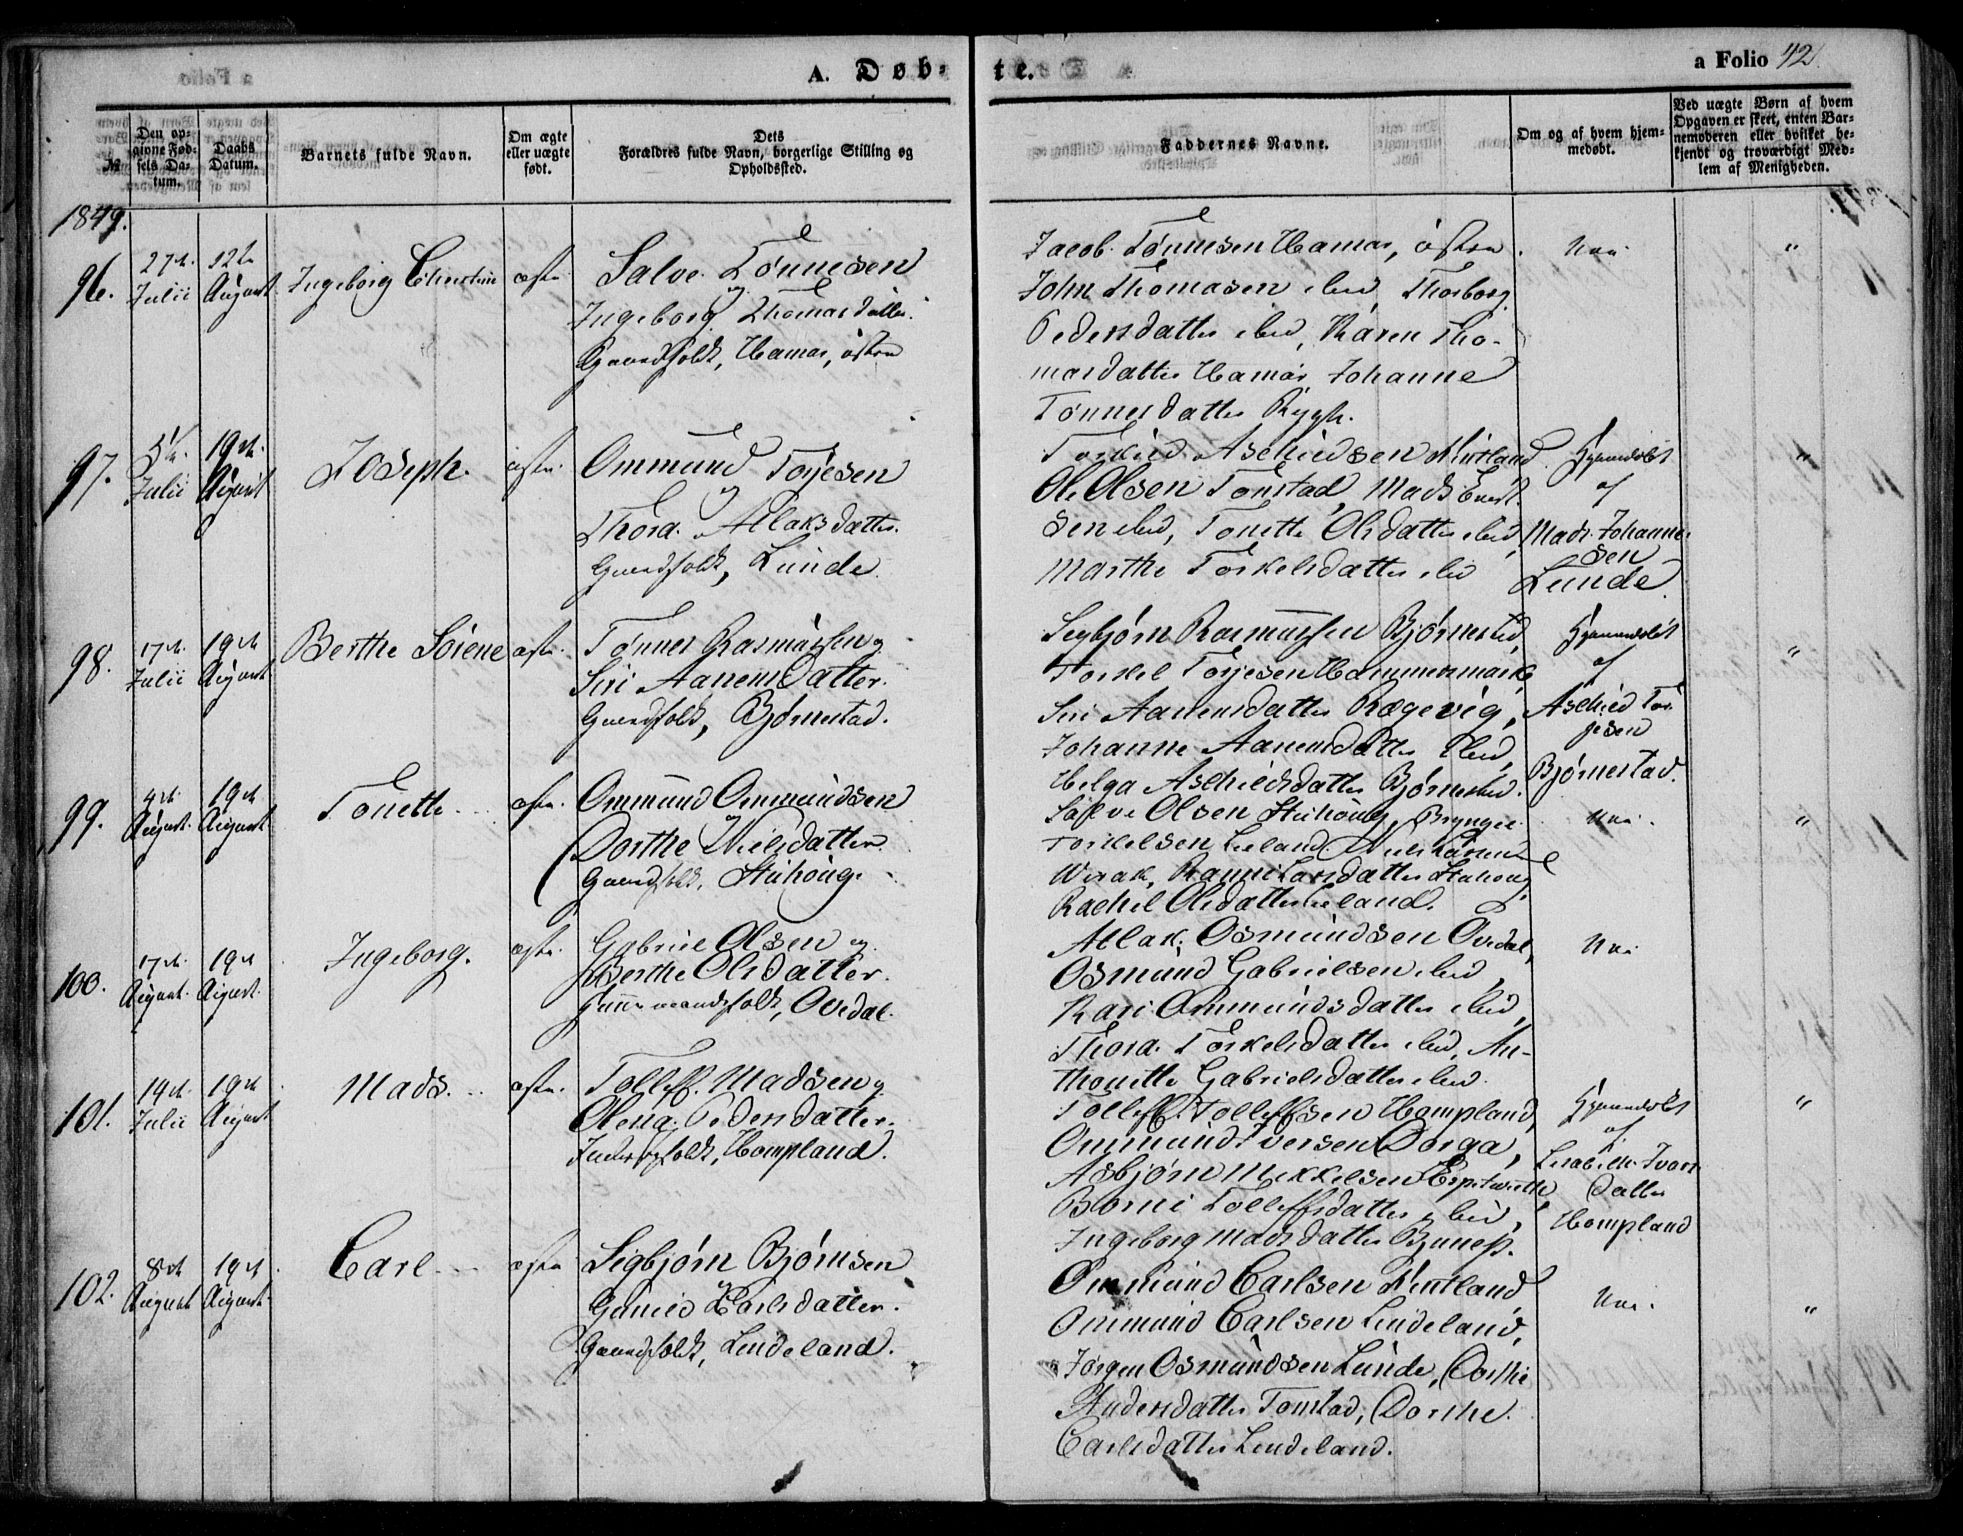 A. Døbte.
a Folio 42
№
Den opgivne Fødsels Datum.
Daabs Datum.
Barnets fulde Navn.
Om ægte eller uægte født.
Dets Forældres fulde Navn, borgerlige Stilling og Opholdssted.
Faddernes Navne.
Om og af hvem hjemmedøbt.
Ved uægte Børn af hvem Opgaven er skeet, enten Barnemoderen eller hvilket bekjendt og troværdigt Medlem af Menigheden.
1849.
96.
27de Julii
12te August
Ingeborg Christine
ægte
Salve Tønnesen
og
Ingeborg Thomasdatter
Gaardfolk, Hamar, østre
Jacob Tønnesen Hamar, østre
John Thomasen ibid, Thorborg
Pedersdatter ibid, Karen Tho-
masdatter Hamar, Johanne
Tønnesdatter Rygh.
Nei
"
97.
5te Julii
19de August
Joseph.
ægte
Ommund Torjesen
og
Thora Atlaksdatter
Gaardfolk, Lunde.
Torkild Aschildsen Kirtland
Ole Olsen Tonstad, Mads
sen ibid, Tonette Olsdatter ibid
Marthe Torkelsdatter ibid
Hjemmedøbt
af
Mads Johanne-
sen
Lunde
"
98.
17de Julii
19de August
Berthe Sørene
ægte
Tønnes Rasmussen og
Siri Aanensdatter
Gaardfolk, Bjørnestad.
Segbjørn Rasmussen Bjørnestad,
Torkel Torjesen Hammersmark,
Siri Aanensdatter Rægevig,
Johanne Aanensdatter ibid,
Helga Aschildsdatter Bjørnestad.
Hjemmedøbt
af
Aschild Tor-
jesen
Bjørnestad.
"
99.
4de August
19de August
Tonette
ægte
Ommund Ommundsen
og
Dorthe Nielsdatter
Gaardfolk, Stuhoug.
Salve Olsen Stuhoug, Bryngel
Torkelsen Leland, Niels Larsen
Wirak, Ranni Larsdatter Stuhoug
Rachel Olsdatter Leland.
Nei
"
100.
17de August
19de August
Ingeborg.
ægte
Gabriel Olsen og
Berthe Olsdatter
folk, Ovedal.
Atlak Osmundsen Ovedal,
Osmund Gabrielsen ibid,
Kari Ommundsdatter ibid,
Thora Torkelsdatter ibid, An-
thonette Gabrielsdatter ibid.
Nei
101.
19de Julii
19de August
Mads.
ægte
Tolleff Madsen og
Olena Pedersdatter
Inderstfolk, Hompland.
Tolleff Tolleffsen Hompland,
Ommund Iversen Dorga,
Asbjørn Mikkelsen Espetvedt,
Borni Tolleffsdatter ibid,
Ingeborg Madsdatter
Hjemmedøbt
af
Lisabeth Ivars-
datter
Hompland
"
102.
8de August
19de August
Carl
ægte
Sigbjørn Bjørnsen
og
Gunild Karlsdatter
Gaardfolk, Lindeland.
Ommund Carlsen Kirtland
Ommund Carlsen Lindeland,
Jørgen Osmundsen Lunde, Dorthe
Andersdatter Tonstad, Dorthe
Carlsdatter Lindeland.
Nei
"